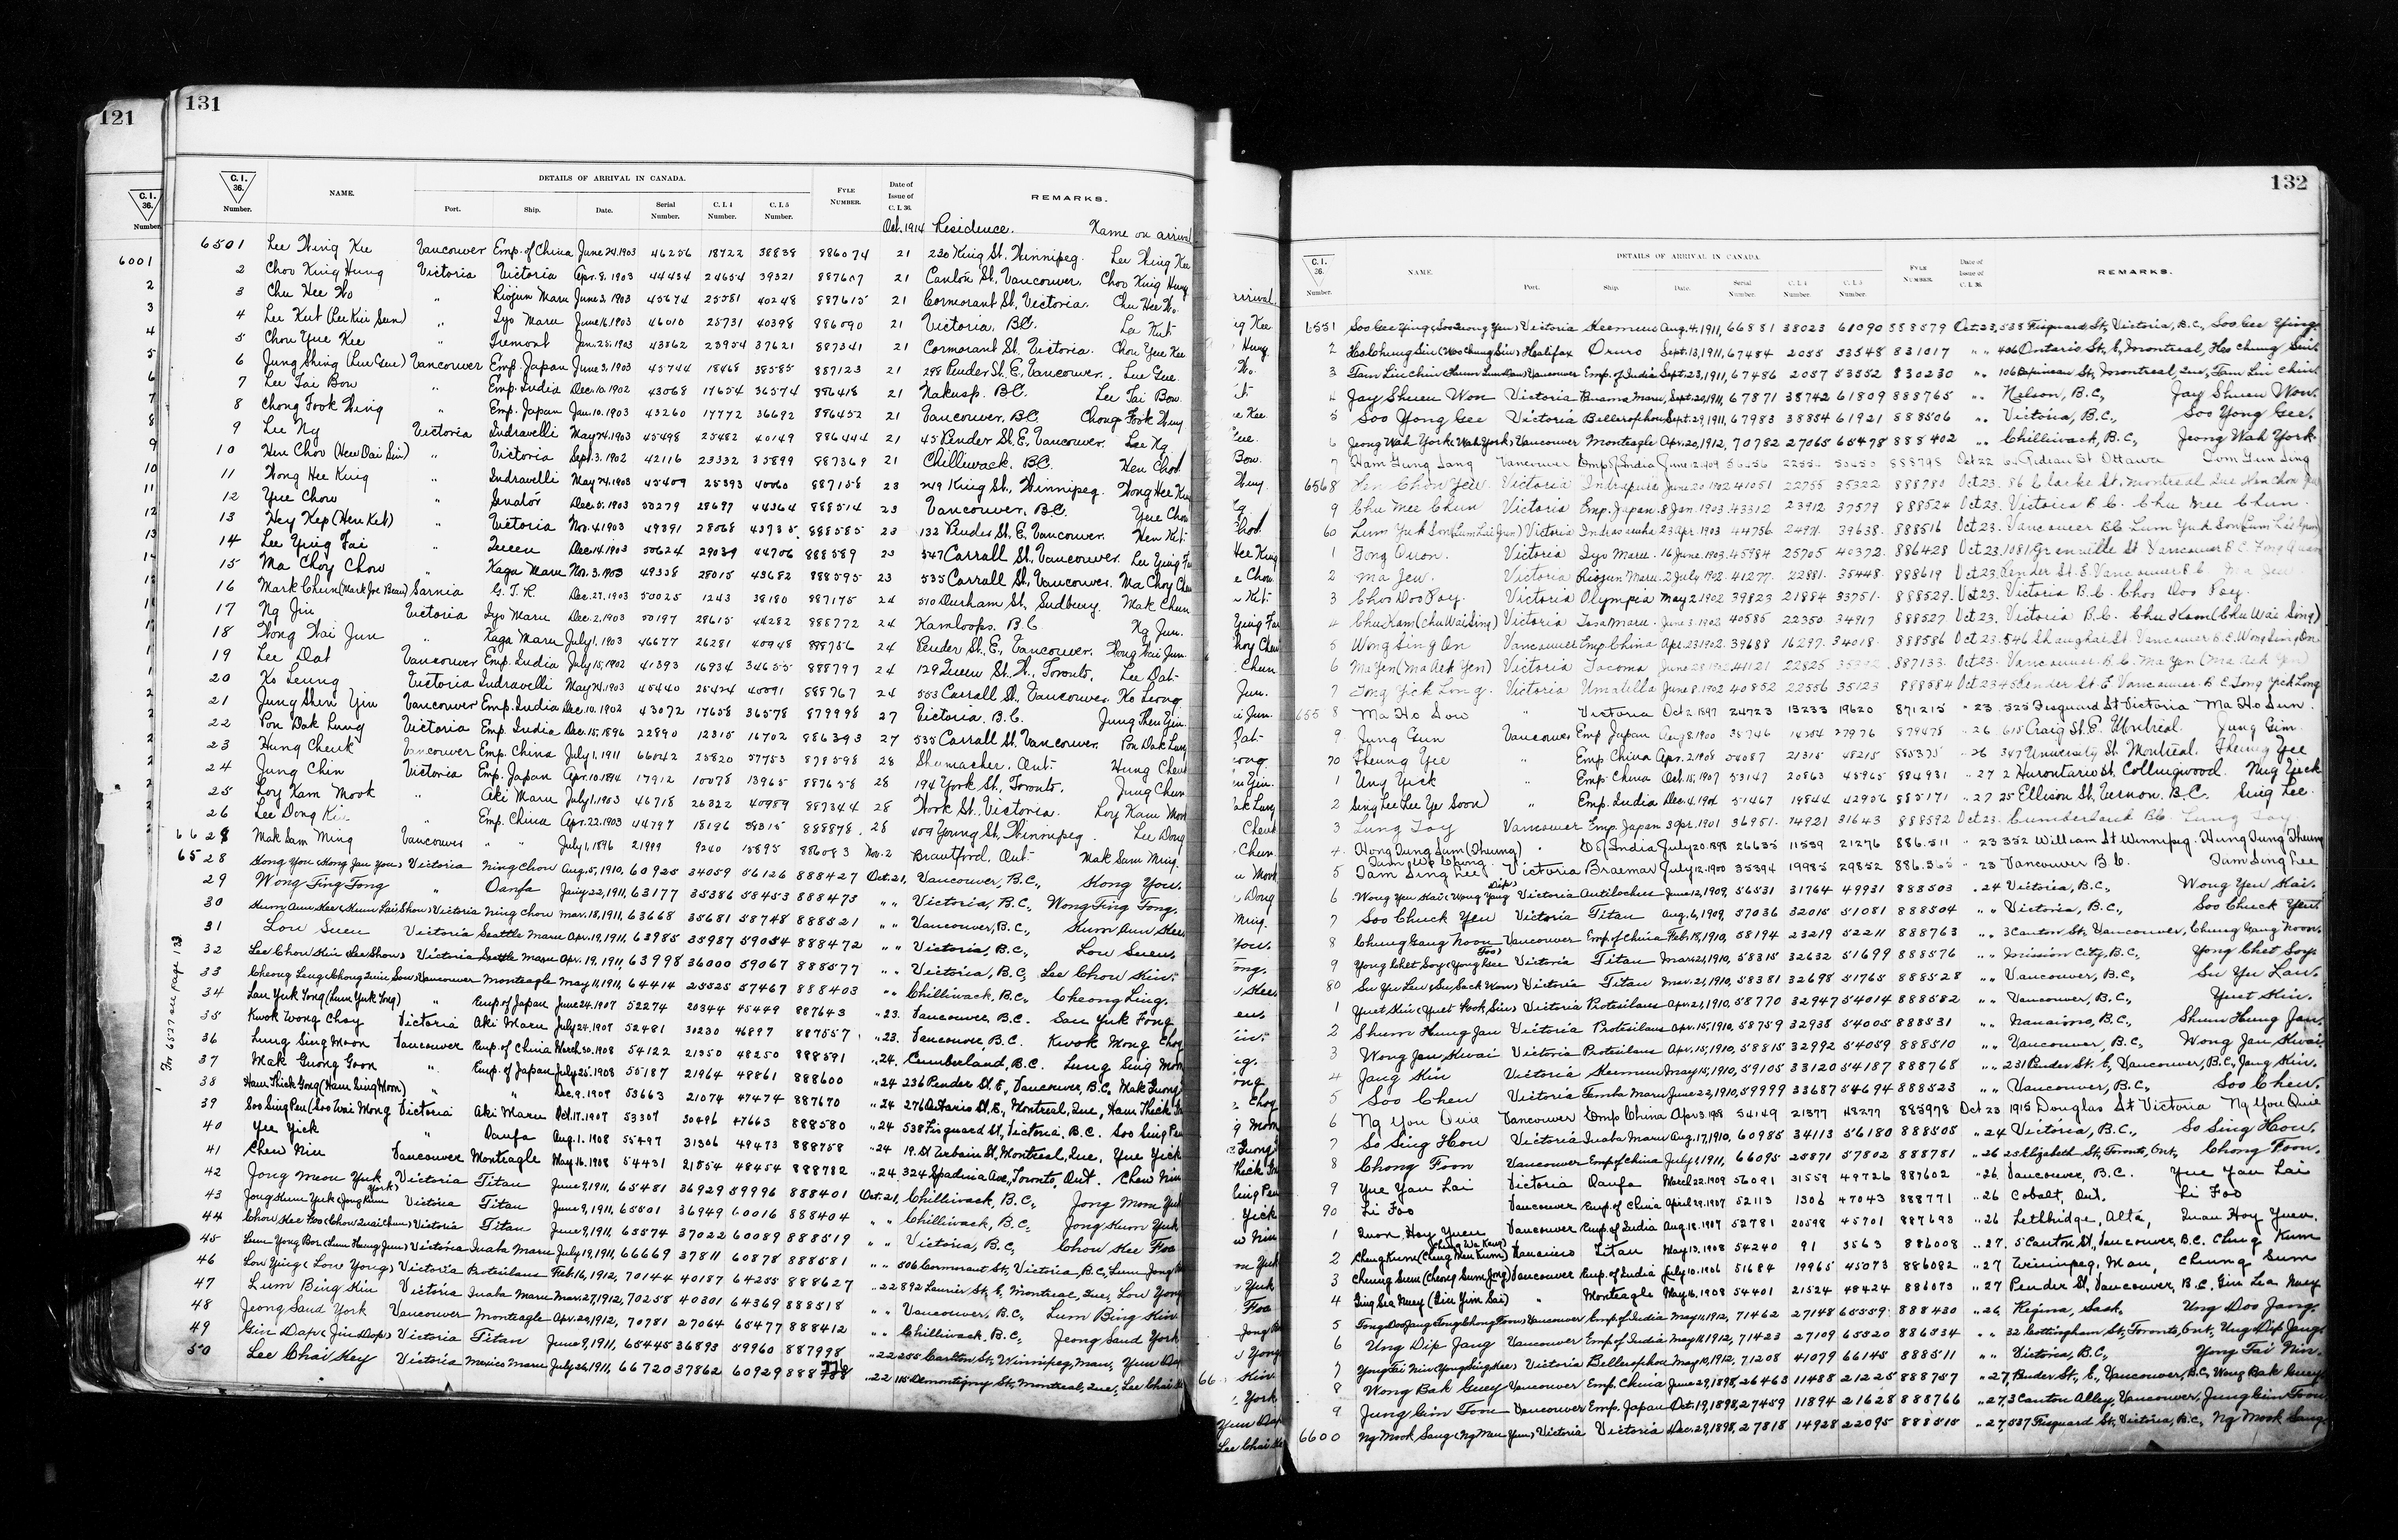 121
131
C. I. 36. Number.
NAME.
DETAILS OF ARRIVAL IN CANADA.
Port. Ship. Date. Serial Number. C. I. 4 Number. C. I. 5 Number.
FYLE NUMBER.
Date of Issue of C. I. 36.
REMARKS.
Oct. 1914 Residence. Name on arrival
6501 Lee Wing Kee Vancouver Emp. of China June 24, 1903 46256 18722 38838 886074 21 230 King St. Winnipeg. Lee Wing Kee
2 Choo King Hung Victoria Victoria Apr. 8. 1903 44434 24654 39321 887607 21 Canton St, Vancouver. Choo King Hung
3 Chu Hee Wo " Riojun Maru June 3, 1903 45674 25581 40248 887615 21 Cormorant St, Victoria. Chu Hee Wo.
4 Lee Kut (Lee Kui Sun) " Iyo Maru June 16, 1903 46010 25731 40398 886090 21 Victoria, B.C. Lee Kut
5 Chou Yue Kee " Tremont Jan. 28, 1903 43562 23954 37621 887341 21 Cormorant St. Victoria. Chou Yue Kee
6 Jung Shing (Lue Gue) Vancouver Emp. Japan June 3, 1903 45744 18468 38585 887123 21 298 Pender St. E, Vancouver. Lue Gue.
7 Lee Tai Bow " Emp. India Dec. 10. 1902 43068 17654 36574 886418 21 Nakusp. B.C. Lee Tai Bow.
8 Chong Fook Wing " Emp. Japan Jan. 10. 1903 43260 17772 36692 886452 21 Vancouver, B.C. Chong Fook Wing
9 Lee Ng Victoria Indravelli May 24, 1903 45498 25482 40149 886444 21 45 Pender St. E, Vancouver. Lee Ng.
10 Hew Chov (Hew Dai Sin) " Victoria Sept. 3. 1902 42116 23332 35899 887369 21 Chilliwack. B.C. Hew Chov
11 Wong Hee King " Indravelli May 24, 1903 45409 25393 40060 887158 23 249 King St., Winnipeg. Wong Hee King
12 Yue Chow " Senator Dec. 5, 1903 50279 28697 44364 888514 23 Vancouver, B.C. Yue Chow
13 Hey Kep (Hew Ket) " Victoria Nov. 4, 1903 49391 28068 43735 888585 23 132 Pender St. E. Vancouver. Hew Ket
14 Lee Ying Tai " Queen Dec. 14, 1903 50624 29039 44706 888589 23 547 Carrall St, Vancouver Lee Ying Tai
15 Ma Choy Chow " Kaga Maru Nov. 3. 1903 49338 28015 43682 888595 23 535 Carrall St, Vancouver. Ma Choy Chow
16 Mark Chun (Mark Joe Bean) Sarnia G.T.R. Dec. 27, 1903 50025 1243 38180 887175 24 510 Durham St, Sudbury. Mak Chun
17 Ng Jin Victoria Iyo Maru Dec. 2, 1903 50197 28615 44282 888772 24 Kamloops. B.C. Ng Jun.
18 Wong Wai Jun " Kaga Maru July 1, 1903 46677 26281 40948 888756 24 Pender St., E., Vancouver. Wong Wai Jun
19 Lee Dat Vancouver Emp. India July 15, 1902 41393 16934 34655 888797 24 129 Queen St. W., Toronto. Lee Dat
20 Ko Leung Victoria Indravelli May 24, 1903 45440 25424 40091 888767 24 553 Carrall St., Vancouver. Ko Leong
21 Jung Shen Yin Vancouver Emp. India Dec. 10, 1902 43072 17658 36578 879998 27 Victoria. B.C. Jung Shen Yin.
22 Pon Dak Lung Victoria Emp. India Dec. 15, 1896 22890 12315 16702 886393 27 535 Carrall St. Vancouver. Pon Dak Lung
23 Hung Cheuk Vancouver Emp. China July 1, 1911 66042 25820 57753 878598 28 Shumacher. Ont. Hung Cheuk
24 Jung Chin Victoria Emp. Japan Apr. 10, 1894 17912 10078 13965 887658 28 194 York St, Toronto. Jung Chun
25 Loy Kam Mook " Aki Maru July 1, 1903 46718 26322 40989 887344 28 York St. Victoria. Loy Kam Mook
26 Lee Dong Kim " Emp. China Apr. 22, 1903 44797 18196 38315 888878 28 409 Young St, Winnipeg. Lee Dong
6628 Mak Sam Ming Vancouver " " July 1, 1896 21999 9240 15895 886083 Nov. 2 Brantford. Ont. Mak Sam Ming.
6528 Kong You (Kong Jan You) Victoria Ning Chow Aug. 5, 1910, 60925 34059 56126 888427 Oct. 21, Vancouver, B.C., Kong You.
29 Wong Ting Tong " Oanfa Jany 22, 1911, 63177 35386 58453 888475 " " Victoria, B.C., Wong Ting Tong.
30 Kum Aun Kee (Kum Lai Shou) Victoria Ning Chow Mar. 18, 1911, 63668 35681 58748 888521 " " Vancouver, B.C., Kum Aun Kee
31 Lou Suen Victoria Seattle Maru Apr. 19, 1911, 63985 35987 59054 888472 " " Victoria, B.C., Lou Suen.
32 Lee Chou Kin (Lee Shou) Victoria Seattle Maru Apr. 19, 1911, 63998 36000 59067 888577 " " Victoria, B.C., Lee Chou Kin.
33 Cheong Leng (Chong Quin Sow) Vancouver Monteagle May 11, 1911, 64414 25525 57467 888403 " " Chilliwack, B.C., Cheong Ling.
34 Lau Yuk Tong (Lum Yuk Tong) " Emp. of Japan June 24, 1907 52274 20344 45449 887643 " 23. Vancouver, B.C. Lau Yuk Tong
35 Kwok Wong Choy Victoria Aki Maru July 24, 1907 52481 30230 46897 887557 " 23. Vancouver, B.C. Kwok Mong Choy
36 Lung Sing Moon Vancouver Emp. of China March 30, 1908 54122 21350 48250 888591 " 24. Cumberland, B.C. Lung Sing Moon
37 Mak Guong Goon " Emp. of Japan July 25, 1908 55187 21964 48861 888600 " 24 236 Pender St. E, Vancouver, B.C. Mak Guong
38 Ham Thick Gong (Ham Sing Moon) " " Dec. 9. 1907 53663 21074 47474 887670 " 24 276 Ontario St, E., Montreal, Que, Ham Thick
39 Soo Sing Pew (Soo Wai Mong) Victoria Aki Maru Oct. 17, 1907 53307 30496 47663 888580 " 24 538 Fisguard St, Victoria, B.C. Soo Sing Pew
40 Yee Yick " Oanfa Aug. 1. 1908 55497 31306 49473 888758 " 24 19. St Urbain St, Montreal, Que, Yue Yick
41 Chew Nin Vancouver Monteagle May 16, 1908 54431 21554 48454 888782 " 24, 324 Spadina Ave, Toronto, Ont. Chew Nin
42 Jong Meow Yuk Victoria Titan June 9, 1911, 65481 36929 59996 888401 Oct. 21, Chilliwack, B.C., Jong Mow Yuk
43 Jong Kum Yuk (Jong Kum York) Victoria Titan June 9, 1911, 65501 36949 60016 888404 " " Chilliwack, B.C., Jong Kum Yuk
44 Chou Kee Foo (Chow Quai Chun) Victoria Titan June 9, 1911, 65574 37022 60089 888519 " " Victoria, B.C, Chou Kee Foo
45 Lum Yong Bor (Lum Heung Jun) Victoria Inaba Maru July 19, 1911, 66669 37811 60878 888581 " " 506 Cormorant St, Victoria, B.C., Lum Jong
46 Lou Ying (Low Yong) Victoria Protesilaus Feb. 16, 1912, 70144 40187 64255 888627 " 22 892 Laurier St, E, Montreal, Que, Lou Yong
47 Lum Bing Kin Victoria Inaba Maru Mar. 27, 1912, 70258 40301 64369 888518 " " Vancouver, B.C., Lum Bing Kin
48 Jeong Saud York Vancouver Monteagle Apr. 20, 1912, 70781 27064 65477 888412 " " Chilliwack, B.C., Jeong Saud York
49 Gin Dap (Jin Dap) Victoria Titan June 9, 1911, 65445 36893 59960 887998 " 22 255 Carlton St, Winnipeg, Man, Yun Dap
50 Lee Chai Key Victoria Mexico Maru July 26, 1911, 66720 37862 60929 888778 " 22 115 Demontigny St, Montreal, Que, Lee Chai
For 6527 see page 133
132
C. I. 36. Number.
NAME.
DETAILS OF ARRIVAL IN CANADA.
Port. Ship. Date. Serial Number. C. I. 4 Number. C. I. 5 Number.
FYLE NUMBER.
Date of Issue of C. I. 36.
REMARKS.
6551 Soo Gee Ying (Soo Leong Yen) Victoria Keemun Aug. 4, 1911, 66881 38023 61090 888579 Oct. 23, 538 Fisguard St, Victoria, B.C., Soo Gee Ying
2 Ho Chung Sin (Hoo Chung Sin) Halifax Oruro Sept. 13, 1911, 67484 2055 53548 831017 " " 406 Ontario St, E, Montreal, Hoo Chung Sin
3 Tam Lin Chin Vancouver Emp. of India Sept. 23, 1911, 67486 2057 53552 830230 " " 106 Papineau St, Montreal, Que, Tam Lin Chin
4 Jay Shuen Won Victoria Panama Maru, Sept. 20, 1911, 67871 38742 61809 888765 " " Nelson, B.C., Jay Shuen Won.
5 Soo Yong Gee Victoria Bellerophon Sept. 29, 1911, 67983 38854 61921 888506 " " Victoria, B.C., Soo Yong Gee.
6 Jeong Wah York (Wah York) Vancouver Monteagle Apr. 20, 1912, 70782 27065 65478 888402 " " Chilliwack, B.C., Jeong Wah York
7 Ham Gung Sang Vancouver Emp of India June 12, 1909 888798 Oct 22 Rideau St Ottawa Tom Gun Sing
6568 Hen Chin Yew Victoria Indrapura June 20 1902 41051 22755 35322 888780 Oct 23. 86 Clarke St. Montreal Que Hen Chin Yew
9 Chu Mee Chun Victoria Emp. Japan. 8 Jan. 1903. 43312 23912 37579 888524 Oct 23. Victoria B.C. Chu Mee Chun
60 Lum Yuk Son (Lum Lai Jun) Victoria Indrasamha 23 Apr. 1903 44756 24971 39638. 888516 Oct 23. Vancouver B.C. Lum Yuk Son (Lum Lai Jun)
1 Fong Quon. Victoria Iyo Maru. 16 June. 1903. 45984 25705 40372. 886428 Oct 23. 1081 Grenville St Vancouver B.C. Fong Quan
2 Ma Jew. Victoria Riojun Maru. 2 July 1902. 41277. 22881. 35448. 888619 Oct 23. Pender St. E. Vancouver B.C. Ma Jew
3 Choo Doo Foy. Victoria Olympia May 2 1902 39823 21884 33751. 888529. Oct 23. Victoria B.C. Choo Doo Foy.
4 Chu Kam (Chu Wai Sing) Victoria Tosa Maru. June 3. 1902 40585 22350 34917 888527. Oct 23. Victoria B.C. Chu Kam (Chu Wai Sing)
5 Wong Sing On Vancouver Emp China Apr. 23 1902. 39688 16297. 34018. 888586 Oct 23. 546 Shanghai St. Vancouver B.C. Wong Sing On
6 Ma Yen (Ma Ack Yen) Victoria Tacoma June 28 1902 41121 22825 887133. Oct 23. Vancouver. B.C. Ma Yen (Ma Ack Yen)
7 Fong Yick Long. Victoria Umatilla June 8. 1902 40852 22556 35123 888584 Oct 23 45 Pender St. E Vancouver. B.C. Fong Yick Long
655 8 Ma Ho Sou " Victoria Oct 2. 1897 24723 13233 19620 871215 " 23. 525 Fisguard St Victoria Ma Ho Sun.
9. Jung Gun Vancouver Emp Japan Aug 8. 1900 35746 14254 27976 879478 " 26 615 Craig St. E. Montreal. Jung Gim.
70 Theung Yee " Emp China Apr. 2, 1908 54087 21315 48215 885375 " 26 347 University St Montreal. Theung Yee
1 Ung Yick " Emp. China Oct. 15, 1907 53147 20863 45965 884931 " 27 2 Hurontario St. Collingwood. Nug Yick
2 Sing Lee (Lee Ye Soon) " Emp. India Dec. 4, 1904 51467 19844 42956 885171 " 27 25 Ellison St. Vernon. B.C. Sing Lee.
3 Lung Toy Vancouver Emp. Japan 3 Apr. 1901 36951. 14921 31643 888592 Oct 23. Cumberland B.C. Lung Toy.
4. Hong Dung Sum (Theung) " E. of India July 20. 1898 26635 11539 21276 886.511 " 23 352 William St Winnipeg. Hung Dung Theung
Tam We Chong
5 Tam Sing Lee Victoria Braemar July 12. 1900 35394 19985 29852 886.365 " 23 Vancouver B.C. Tam Sing Lee
6 Wong Yen Kai (Wong Yung Dip) Victoria Antilochus June 12, 1909, 56531 31764 49931 888503 " 24 Victoria, B.C., Wong Yen Kai.
7 Soo Chuck Yen Victoria Titan Aug. 6, 1909, 57036 32015 51081 888504 " " Victoria, B.C., Soo Chuck Yen.
8 Chung Gang Noon Vancouver Emp. of China Feb. 18, 1910, 58194 23219 52211 888763 " " 3 Canton St, Vancouver, Chung Gang Noon.
9 Yong Chet Soy (Yong Kee Foo) Victoria Titan Mar. 21, 1910, 58315 32632 51699 888576 " " Mission City, B.C., Yong Chet Soy.
80 Su Yu Lau (Su Sack Won) Victoria Titan Mar. 21, 1910, 58381 32698 51765 888528 " " Vancouver, B.C., Su Yu Lau.
1 Yuet Kin (Yuet Hook Sin) Victoria Protesilaus Apr. 21, 1910, 58770 32947 54014 888582 " " Vancouver, B.C., Yuet Kin.
2 Shum Hung Jan Victoria Protesilaus Apr. 15, 1910, 58759 32938 54005 888531 " " Nanaimo, B.C., Shum Hung Jan.
3 Wong Jan Kwai Victoria Protesilaus Apr. 15, 1910, 58815 32992 54059 888510 " " Vancouver, B.C., Wong Jan Kwai.
4 Jang Kin Victoria Keemun May 15, 1910, 59105 33120 54187 888768 " " 231 Pender St. E, Vancouver, B.C., Jang Kin.
5 Soo Chew Victoria Tamba Maru June 22, 1910, 59999 33687 54694 888523 " " Vancouver, B.C., Soo Chew.
6 Ng You Quie Vancouver Emp China Apr 3. 1908 54149 21377 48277 885978 Oct 23 1915 Douglas St Victoria Ng You Quie
7 So Sing Hou Victoria Inaba Maru Aug. 17, 1910, 60985 34113 56180 888505 " 24 Victoria, B.C., So Sing Hou.
8 Chong Foon Vancouver Emp. of China July 1, 1911, 66095 25871 57802 888781 " 26 25 Elizabeth St, Toronto, Ont., Chong Foon.
9 Yue Yan Lai Victoria Oanfa March 22, 1909 56091 31559 49726 887602 " 26. Vancouver, B.C. Yue Yan Lai
90 Li Foo Vancouver Emp. of China April 29. 1907 52113 1306 47043 888771 " 26 Cobalt, Ont. Li Foo
1 Quon Hoy Yuen Vancouver Emp. of India Aug. 18. 1907 52781 20598 45701 887693 " 26 Lethbridge, Alta, Quan Hoy Yuen.
2 Chung Kum (Ching Wa Kum) Nanaimo Titan May 13, 1908 54240 91 3563 886008 " 27. 5 Canton St, Vancouver, B.C. Ching Kum
3 Cheung Sum (Chong Sum Jong) Vancouver Emp. of India July 10. 1906 51684 19965 45073 886082 " 27 Winnipeg, Man, Cheung Sum
4 Ging Sea Nuey (Gin Yim Sai) " Monteagle May 16, 1908 54401 21524 48424 886073 " 27 Pender St, Vancouver, B.C. Gin Sea Nuey
5 Tong Doo Jang Vancouver Emp. of India May 11, 1912, 71462 27148 65559 888430 " 26 Regina, Sask, Ung Doo Jang.
6 Ung Dip Jang Vancouver Emp. of India May 11, 1912, 71423 27109 65520 886534 " " 32 Cottingham St, Toronto, Ont., Ung Dip Jang.
7 Yong Tai Nin (Yong Sing Kee) Victoria Bellerophon May 10, 1912, 71208 41079 66145 888511 " " Victoria, B.C., Yong Tai Nin.
8 Wong Bak Guey Vancouver Emp. China June 29, 1898, 26463 11488 21225 888757 " 27, Pender St., E., Vancouver, B.C., Wong Bak Guey
9 Jung Gim Foon Vancouver Emp. Japan Oct. 19, 1898, 27459 11894 21628 888766 " 27, 3 Canton Alley, Vancouver, Jung Gim Foon
6600 Ng Mook Sang (Ng Man Yun) Victoria Victoria Dec. 29, 1898, 27818 14928 22095 888515 " 27, 537 Fisguard St, Victoria, B.C., Ng Mook Sang